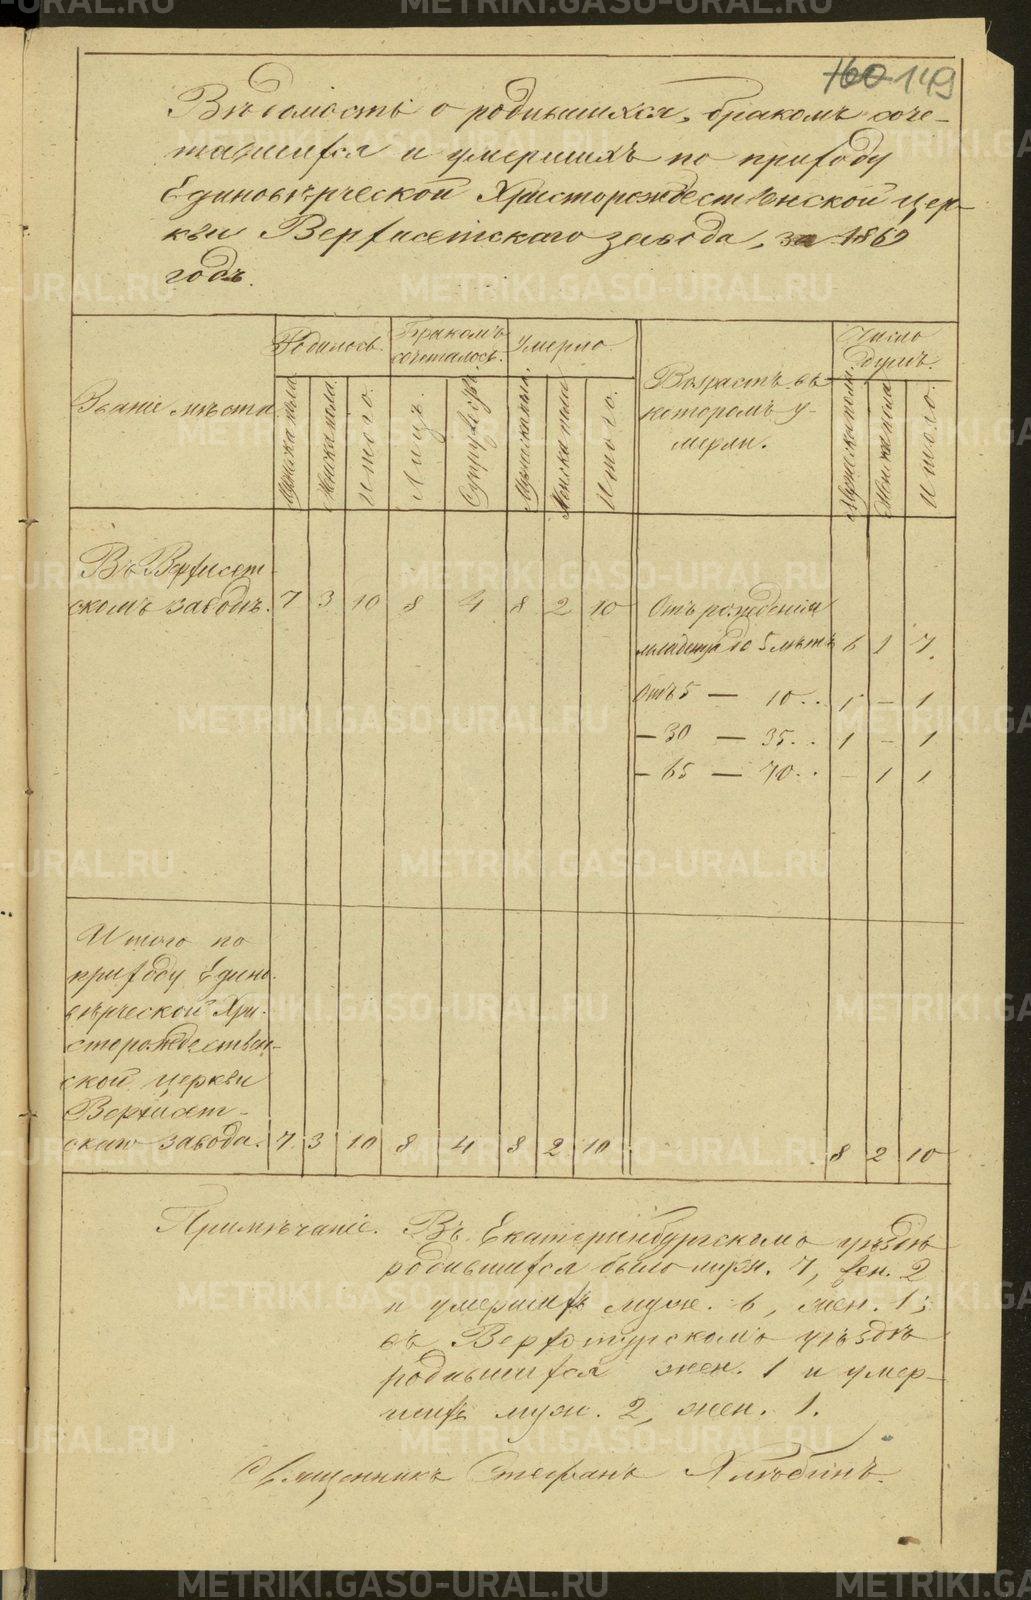 160 149
Вѣдомость о родившихся, бракомъ соче-
тавшихся и умершихъ по приходу
Единовѣрческой Христорождественской цер-
кви Верхисетскаго завода, за 1869
годъ.
Званіе мѣста
Родилось.
Бракомъ сочеталось.
Умерло
Возрастъ въ
которомъ у-
мерли.
Число
душъ.
Мужска пола.
Женска пола.
Итого.
Лицъ.
Супружествъ.
Мужска пола.
Женска пола
Итого.
Мужска пола.
Женска пола
Итого.
Въ Верхисет-
скомъ заводѣ. 7 3 10 8 4 8 2 10
Отъ рожденія
младенца до 5 лѣтъ 6 1 7.
Отъ 5 — 10.. 1 — 1
— 30 — 35.. 1 — 1
— 65 — 70.. — 1 1
Итого по
приходу Едино-
вѣрческой Хри-
сторождествен-
ской церкви
Верхисет-
скаго завода. 7 3 10 8 4 8 2 10 8 2 10
Примѣчаніе. Въ Екатеринбургскомъ уѣздѣ
родившихся было муж. 7, жен. 2
и умершихъ муж. 6, жен. 1;
въ Верхотурскомъ уѣздѣ
родившихся жен. 1 и умер-
шихъ муж. 2, жен. 1.
Священникъ Стефанъ Хлѣбинъ.
METRIKI.GASO-URAL.RU